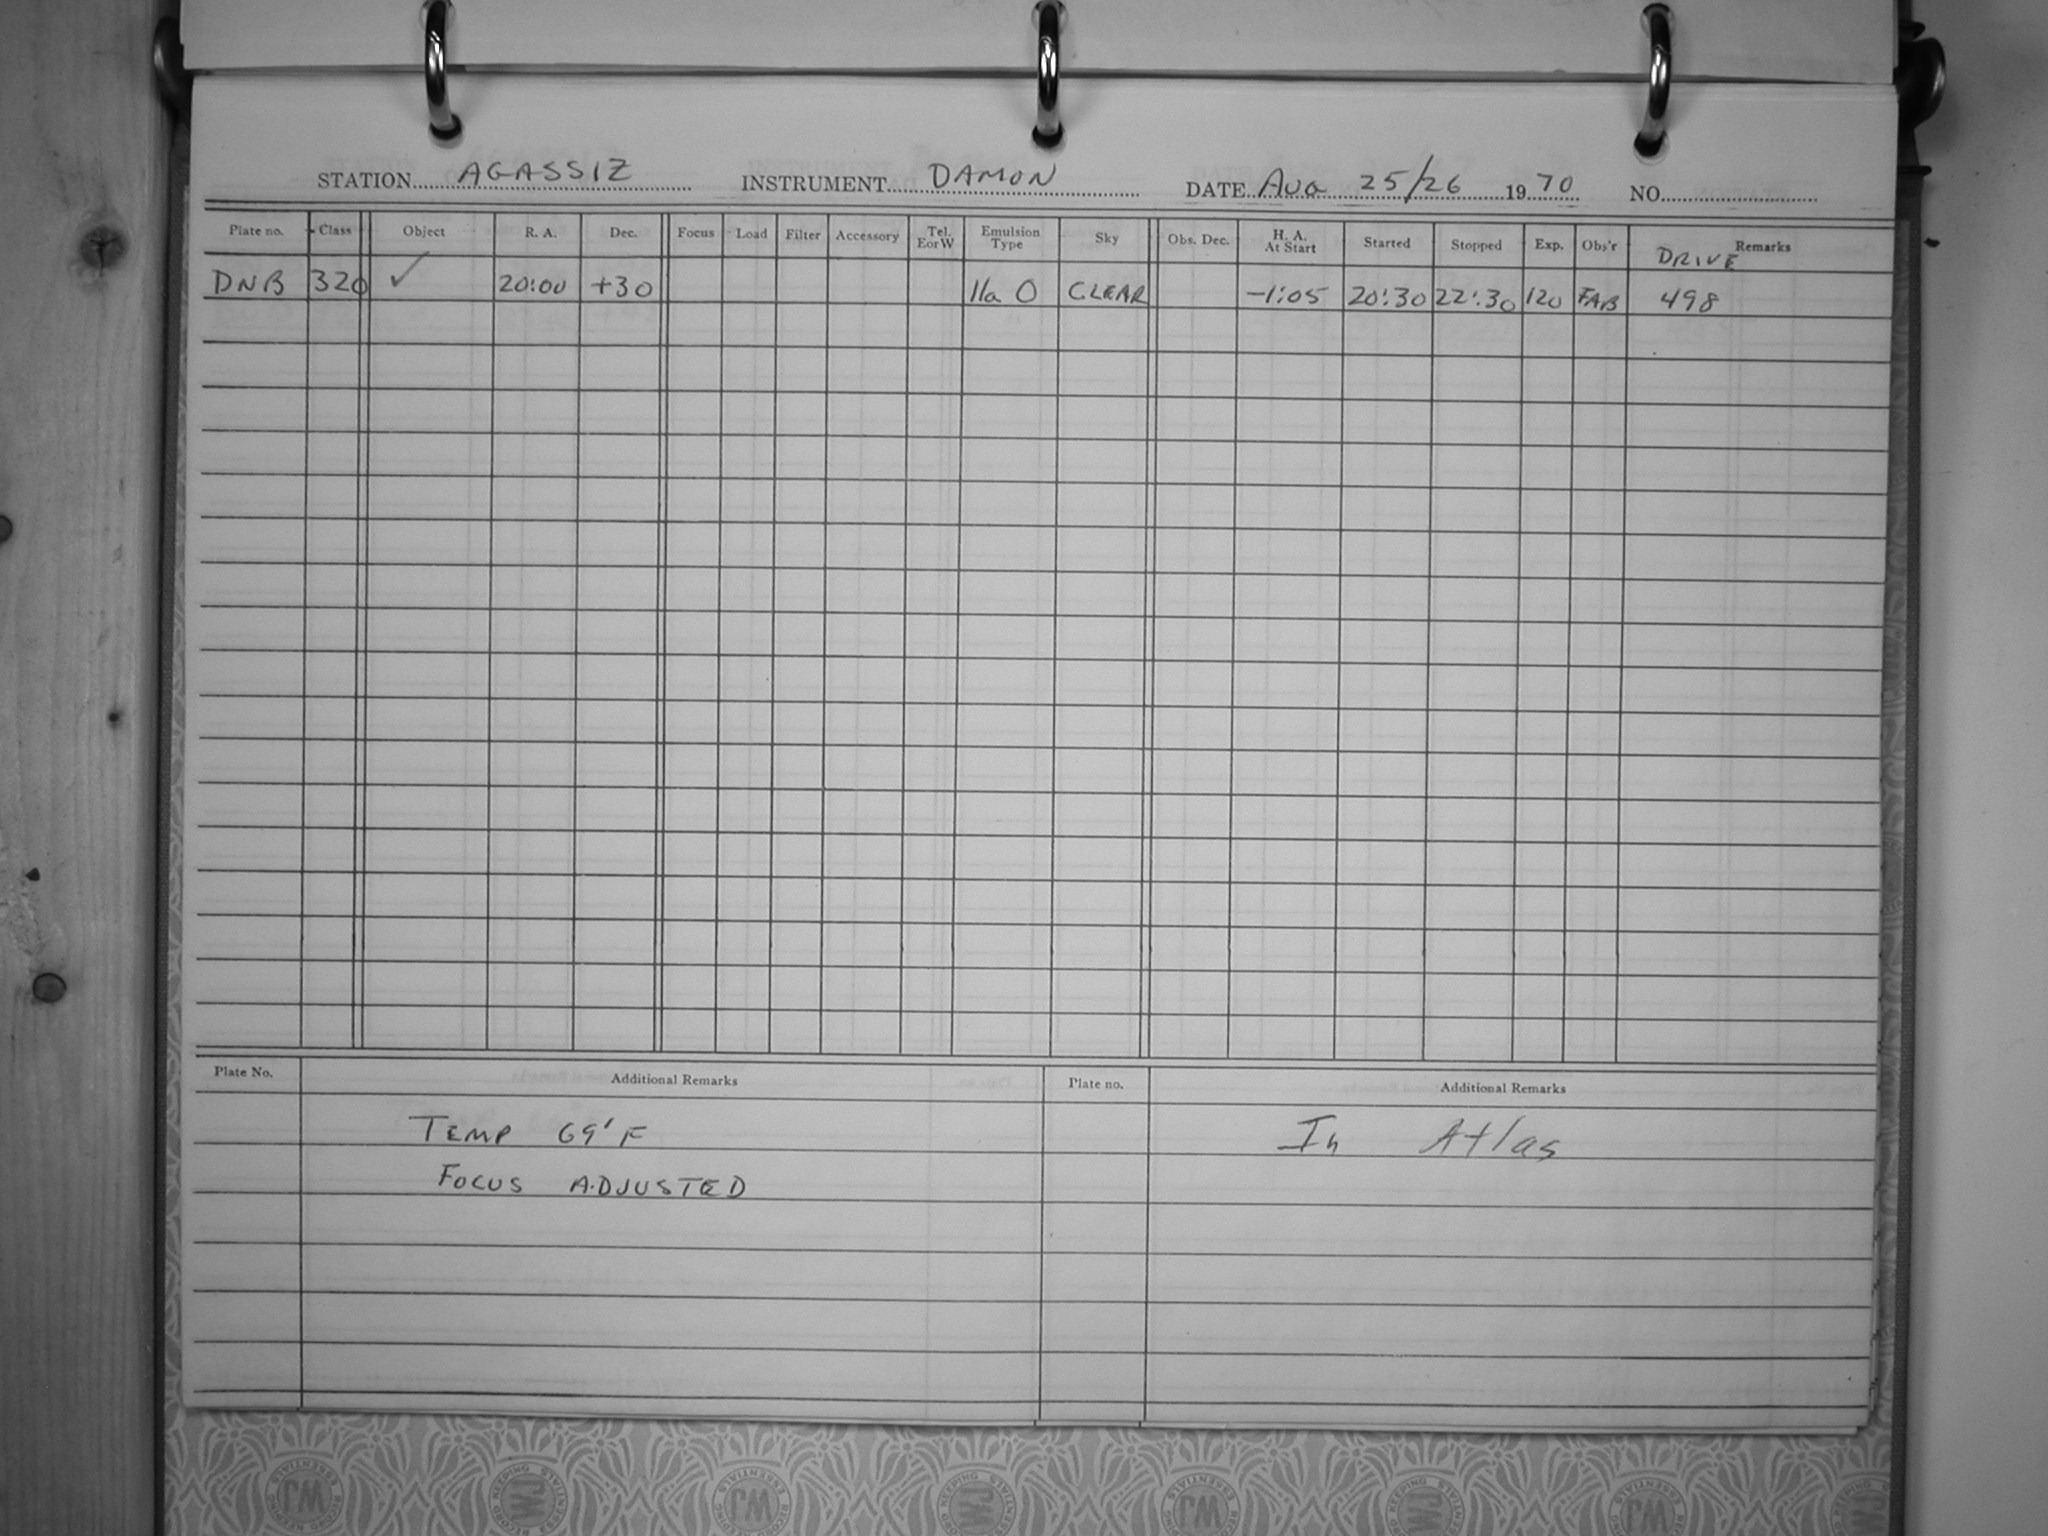 STATION AGASSIZ INSTRUMENT DAMON DATE Aug 25/26 1970 NO.
Plate no. Class Object R. A. Dec. Focus Load Filter Accessory Tel. E or W Emulsion Type Sky Obs. Dec. H. A. At Start Started Stopped Exp. Obs'r DRIVE Remarks
DNB 320 ✓ 20:00 +30 IIa O CLEAR -1:05 20:30 22:30 120 FAB 498
Plate No. Additional Remarks Plate no. Additional Remarks
TEMP 69°F In Atlas
FOCUS ADJUSTED